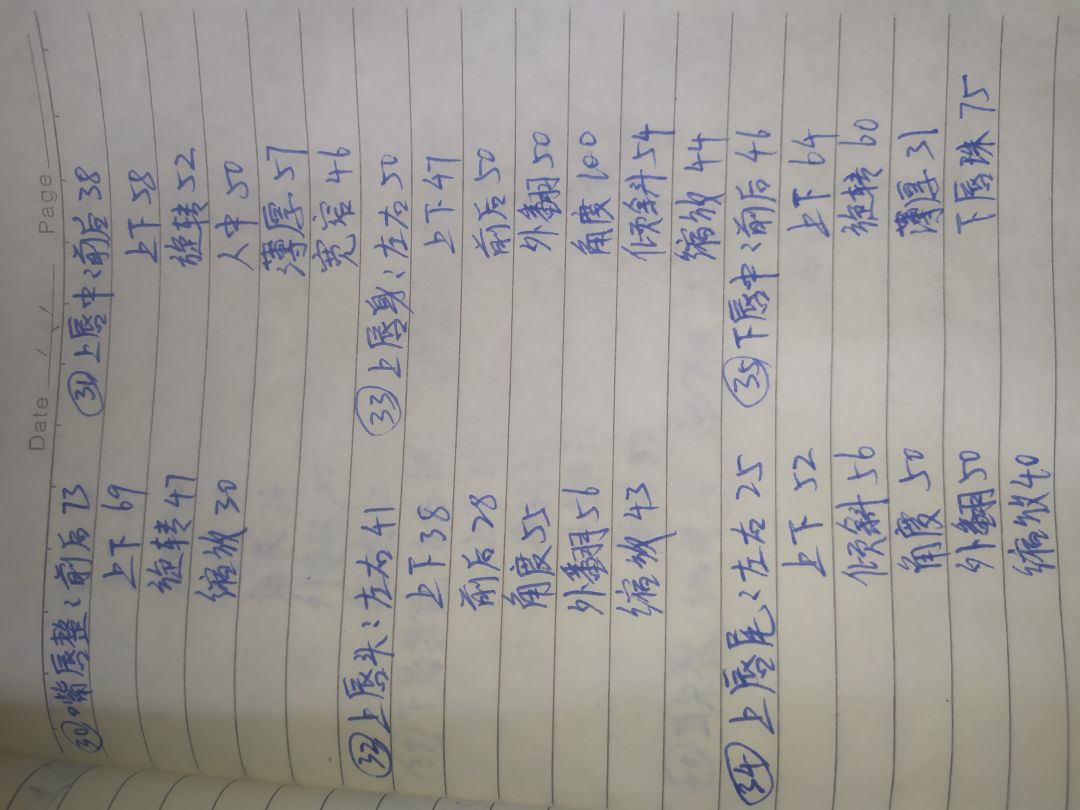 Date / / Page
㉚嘴唇整：前后 73
上下 69
旋转 47
缩放 30
㉛上唇中：前后 38
上下 58
旋转 52
人中 50
薄厚 57
宽窄 46
㉜上唇头：左右 41
上下 38
前后 28
角度 55
外翻 56
缩放 43
㉝上唇身：左右 50
上下 47
前后 50
外翻 50
角度 100
倾斜 54
缩放 44
㉞上唇尾：左右 25
上下 52
倾斜 56
角度 50
外翻 50
缩放 40
㉟下唇中：前后 46
上下 64
旋转 60
薄厚 31
下唇珠 75